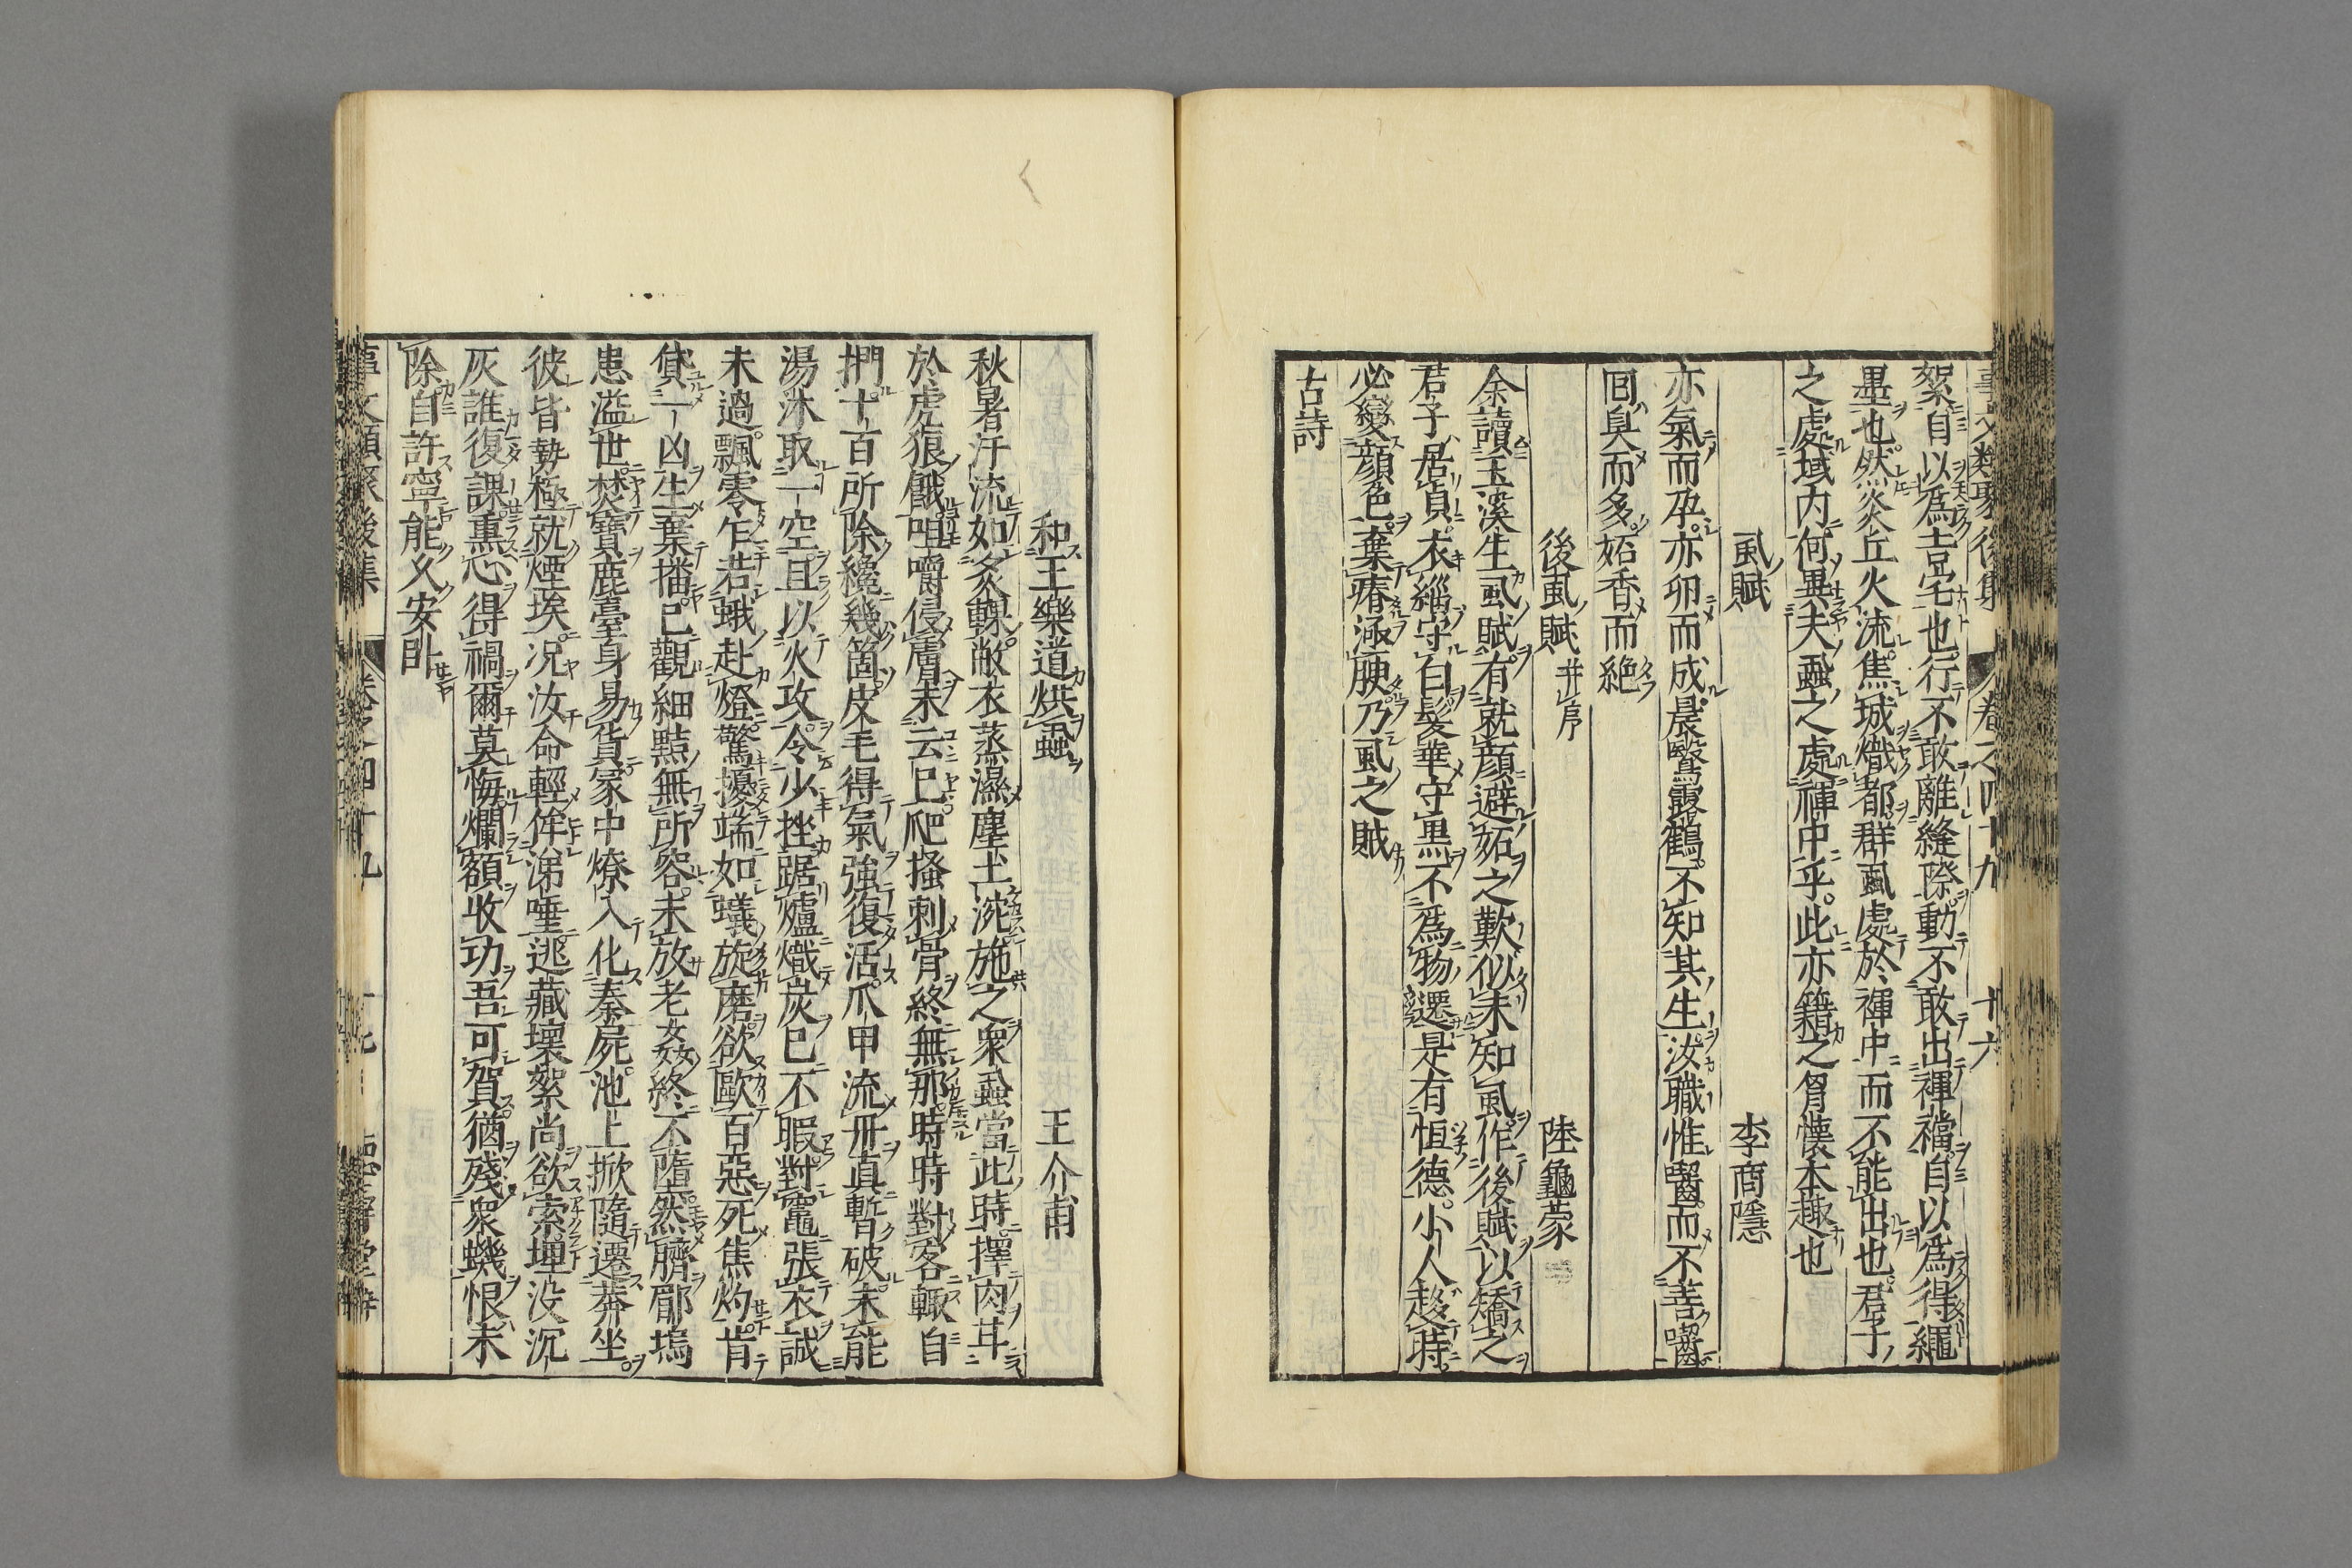 事文類聚後集 卷之四十九 十六
絮自以為吉宅也行不敢離縫際動不敢出褌襠自以為得繩
墨也然炎丘火流焦城熾都群虱處於褌中而不能出也君子
之處域内何異夫蝨之處褌中乎此亦籍之胷懐本趣也
虱賦 李商隱
亦氣而孕亦卵而成晨鷖露鶴不知其生汝職惟齧而不善齧
回臭而多姤香而絶
後虱賦 并序 陸龜蒙
余讀玉溪生虱賦有就顔避姤之歎似未知虱作後賦以矯之
君子居貞衣緇守白髪華守黒不為物遷是有恒德小人趍時
必變顔色棄瘠逐腴乃虱之賊
古詩
和王樂道烘蝨 王介甫
秋暑汗流如炙輠敝衣蒸濕塵土涴施之衆蝨當此時擇肉甘
於虎狼餓咀嚼侵膚未云已爬搔刺骨終無那時時對客輙自
捫十百所除纔幾箇皮毛得氣強復活爪甲流丹真暫破未能
湯沐取一空且以火攻令少挫踞爐熾炭已不暇對竈張衣誠
未過飄零乍若蛾赴燈驚擾端如蟻旋磨欲歐百惡死焦灼肯
貸一凶生棄播已觀細黠無所容未放老姦終不墮然臍郿塢
患溢世焚寶鹿臺身易貨冢中燎入化秦屍池上掀隨遷莽坐
彼皆勢極就煙埃況汝命輕侔涕唾逃藏壞絮尚欲索埋没沉
灰誰復課熏心得禍爾莫悔爛額收功吾可賀猶殘衆蟣恨未
除自許寧能久安卧
事文類聚後集 卷之四十九